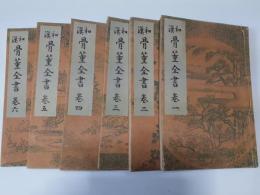 和漢 骨董全書 巻一
和漢 骨董全書 巻二
和漢 骨董全書 巻三
和漢 骨董全書 巻四
和漢 骨董全書 巻五
和漢 骨董全書 巻六